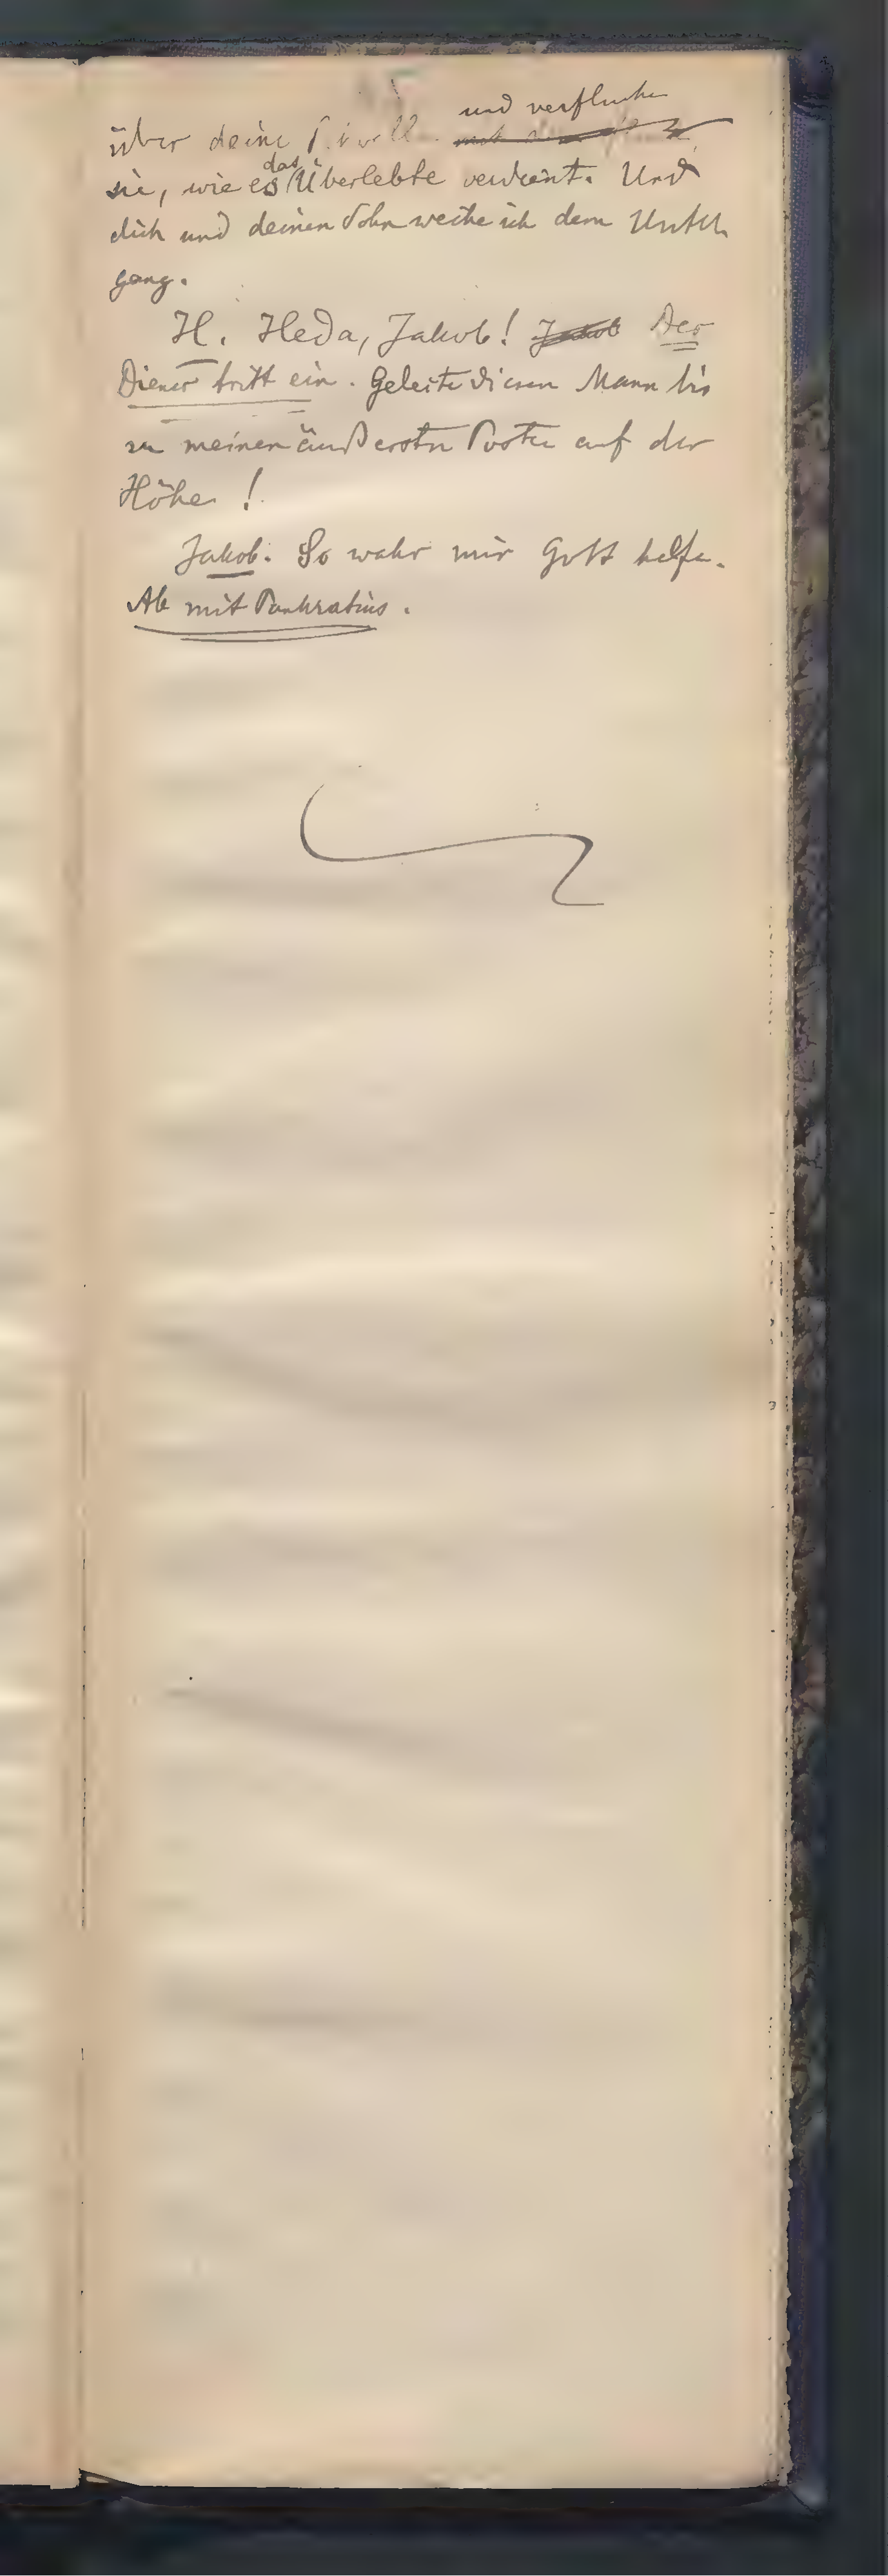 und verfluche
über deine
sie, wie es das Überlebte verdient. Und
dich und deinen Sohn weihe ich dem Unter
gang.
H. Heda, Jakob! Jakob Der
Diener tritt ein. Geleite diesen Mann bis
zu meinen äußersten Posten auf der
Höhe!
Jakob. So wahr mir Gott helfe.
Ab mit Pankratius.